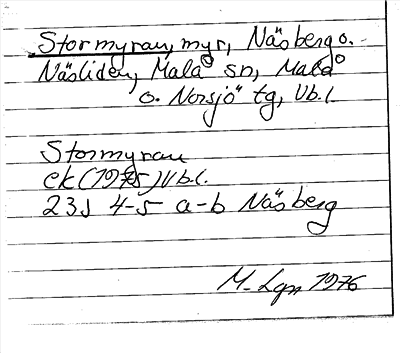 Stormyran, myr, Näsberg o.
Näsliden, Malå sn, Malå
o. Norsjö tg, Vb.l.
Stormyran
ek (1975) Vb.l.
23J 4-5 a-b Näsberg
M. Lgn 1976